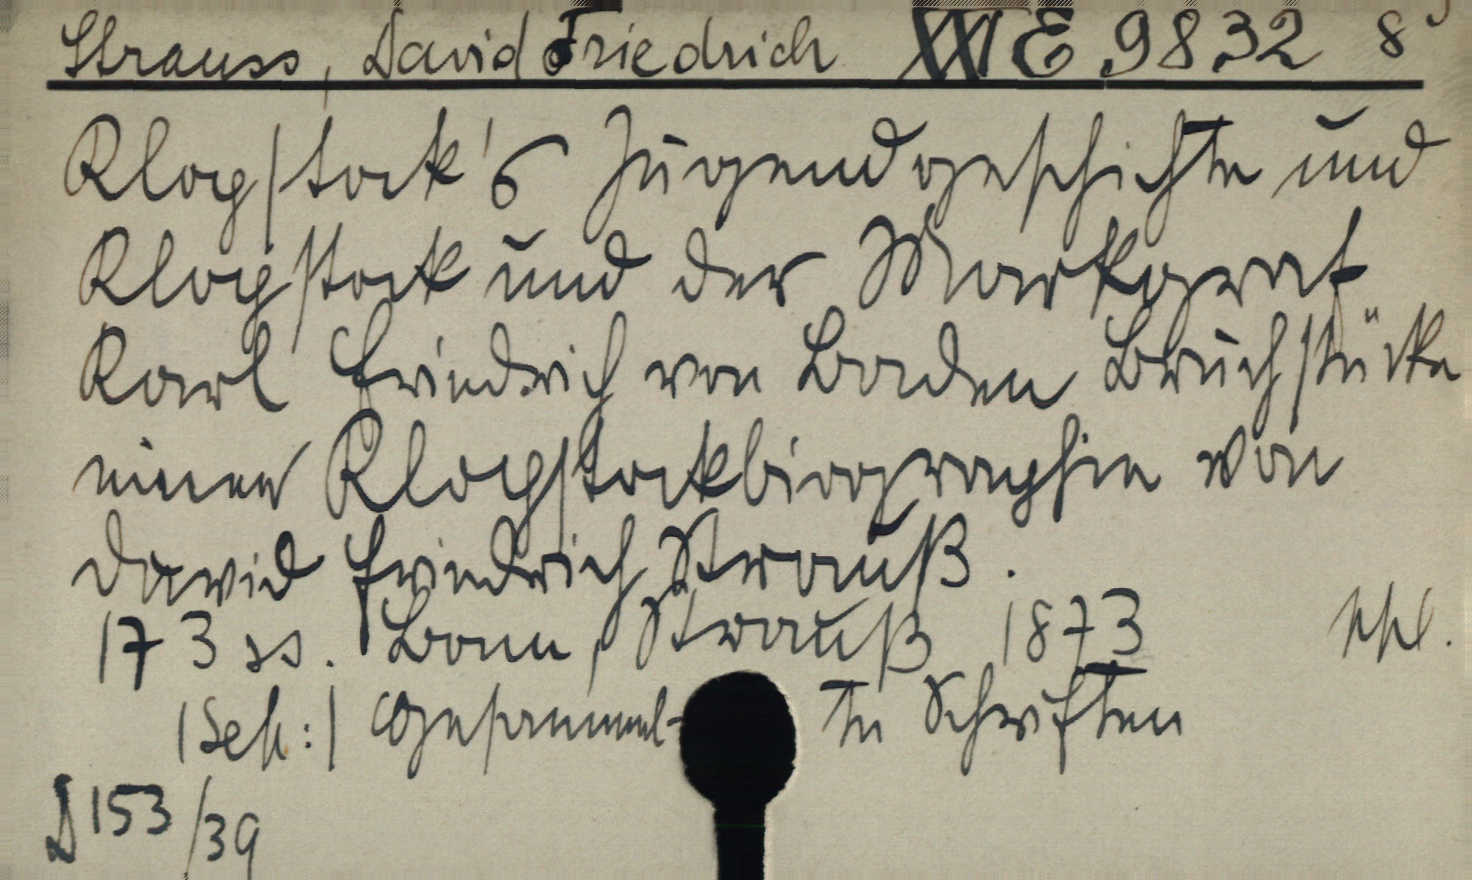 Strauss, David Friedrich XXIE 9832 8°
Klopstock's Jugendgeschichte und
Klopstock und der Markgraf
Karl Friedrich von Baden Bruchstücke
einer Klopstockbiographie von
David Friedrich Strauß.
173 ss. Bonn, Strauß 1873
|Sep:| Gesammel-te Schriften
D 153/39